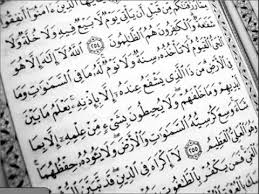 مما رزقنكم من قبل أن يأتي يوم لا بيع فيه ولا خلة ولا
شفعة والكفرون هم الظلمون ٢٥٤ الله لا إله إلا هو
الحي القيوم لا تأخذه سنة ولا نوم له ما في السموات وما
في الأرض من ذا الذي يشفع عنده إلا بإذنه يعلم ما بين
أيديهم وما خلفهم ولا يحيطون بشيء من علمه إلا بما
شاء وسع كرسيه السموات والأرض ولا يئوده حفظهما
وهو العلي العظيم ٢٥٥ لا إكراه في الدين قد تبين